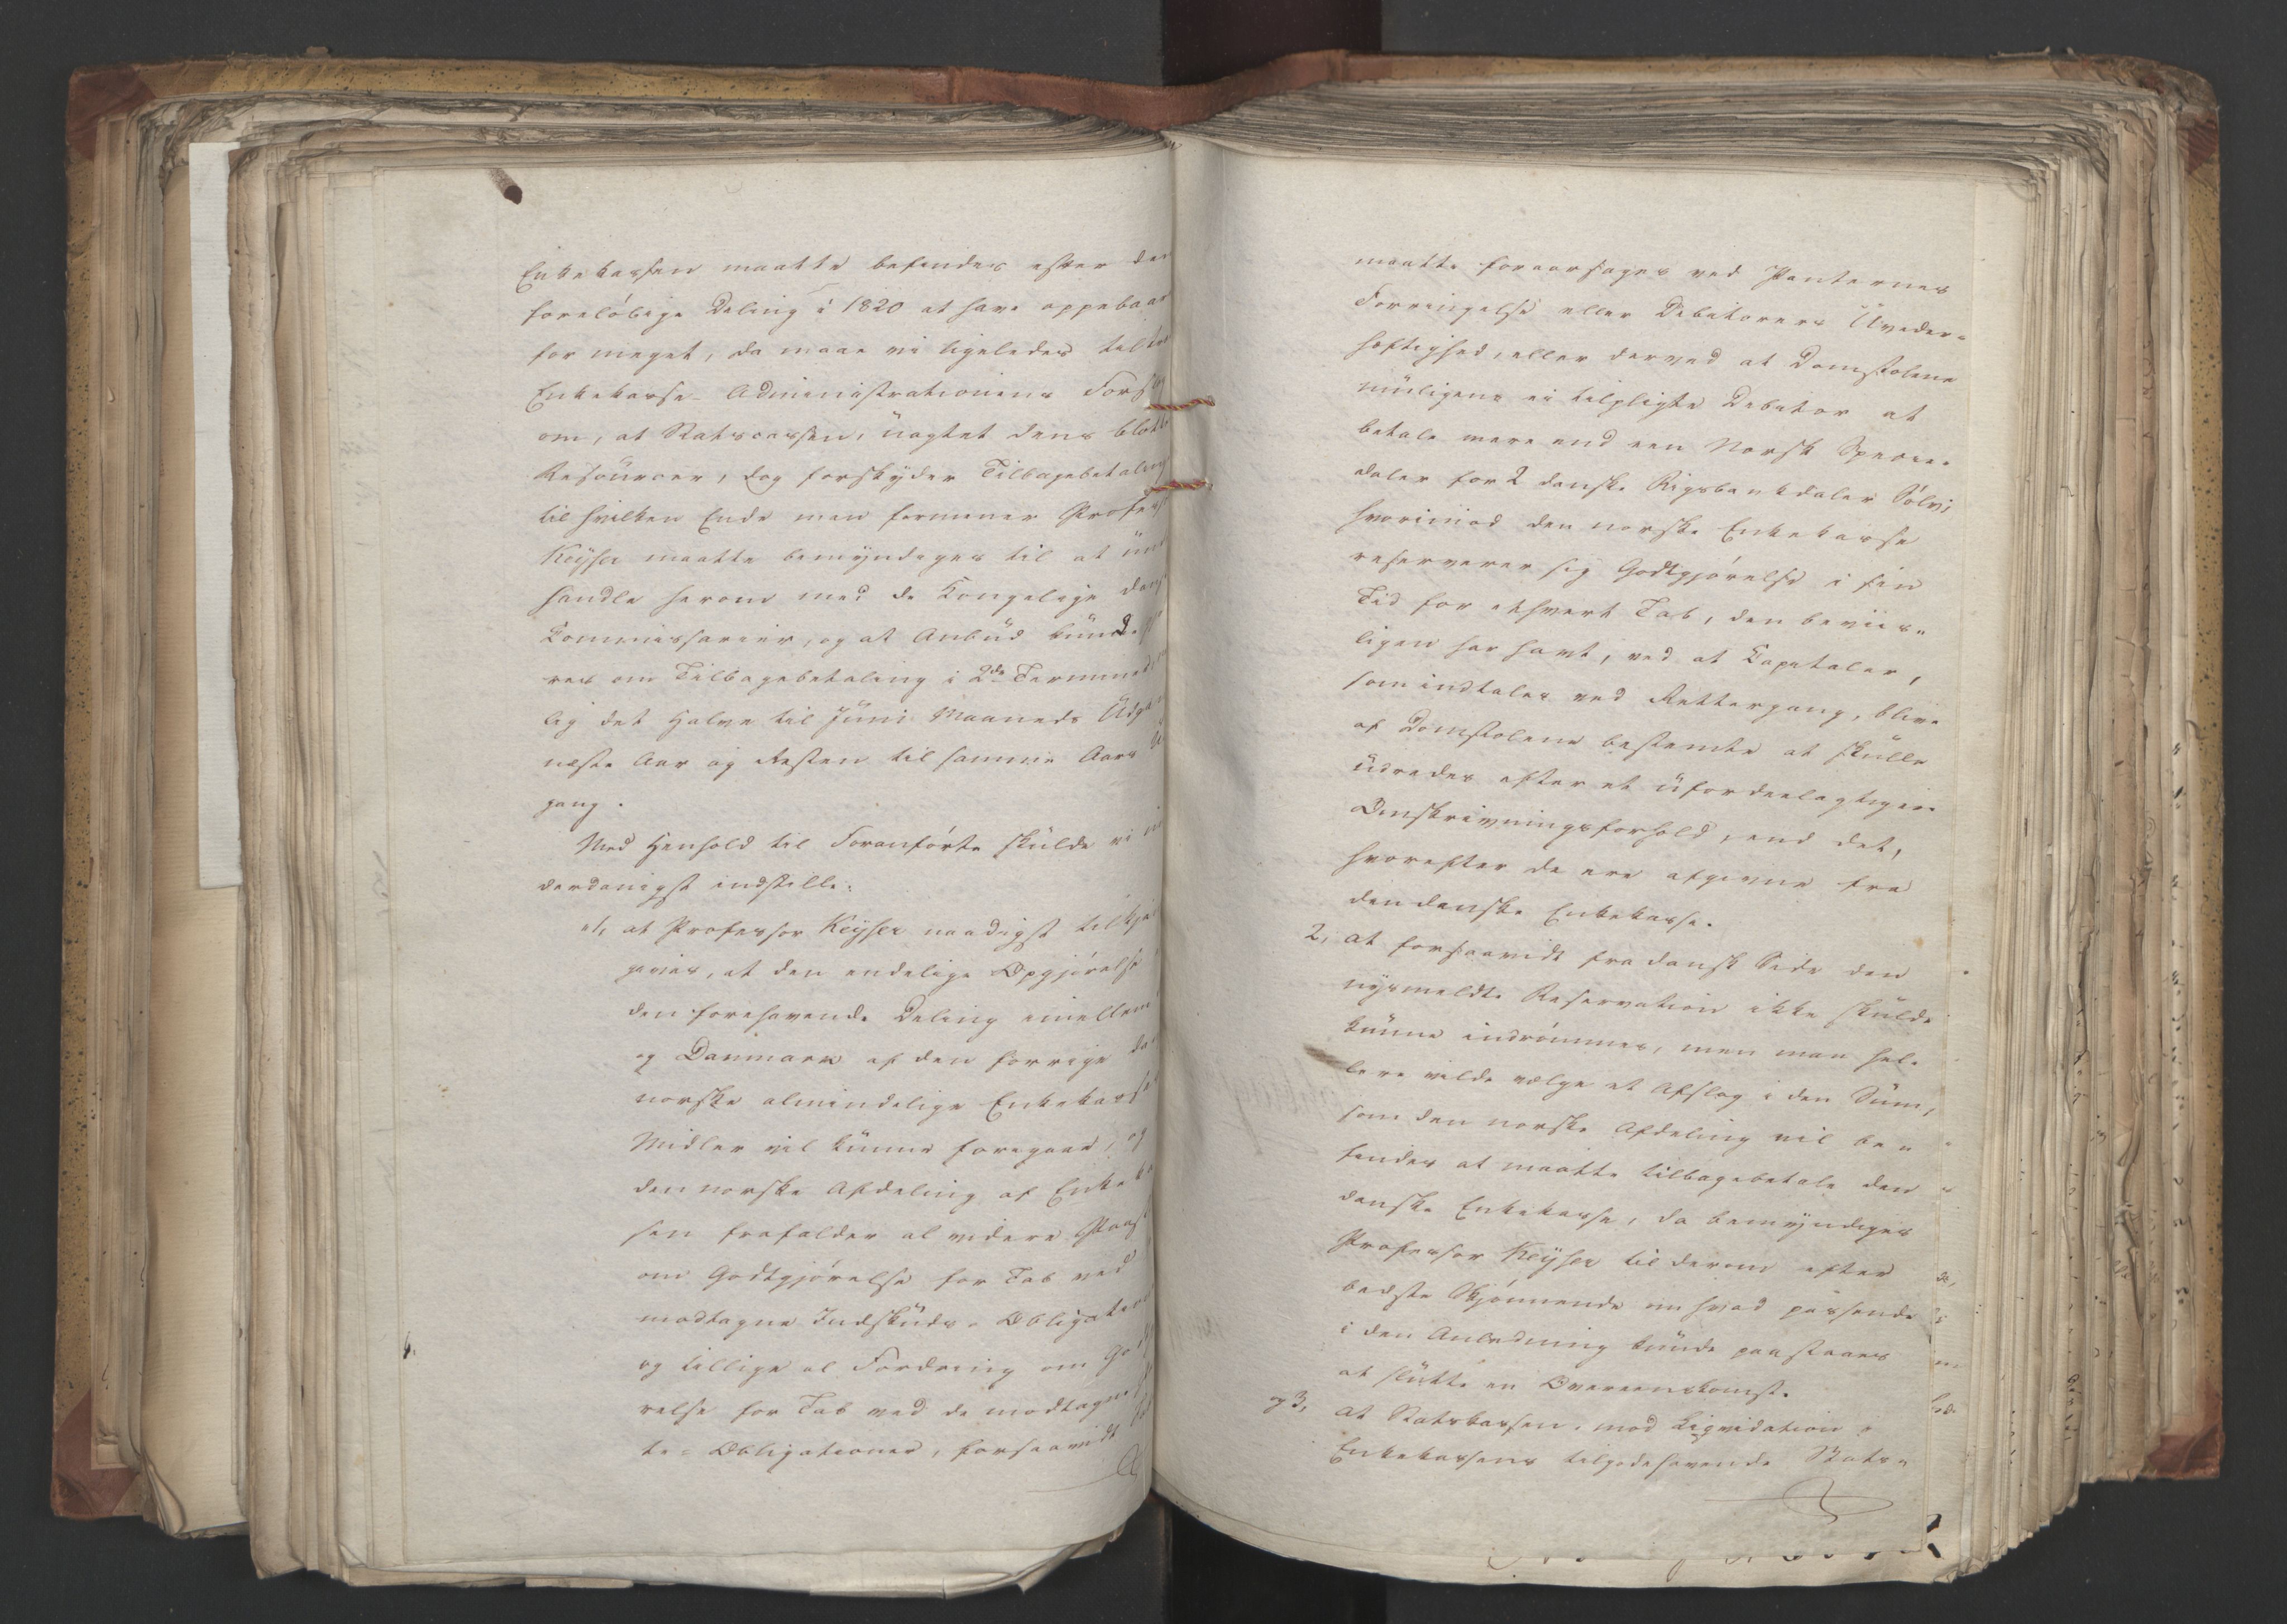 Enkekassen maatte befindes efter den
foreløbige Deling i 1820 at have oppebaar
for meget, da maae vi ligeledes tiltr
Enkekasse-Administrationens Forsl
om, at Statscassen, uagtet dens
Resourcer, dog forskyder Tilbagebetaling
til hvilken Ende man formener Profess
Keyser maatte bemyndiges til at un
handle herom med de Kongelige dans
Commissarier, og at Anbud kunde
res om Tilbagebetaling i 2de Terminer
lig det Halve til Juni Maaneds Udgan
næste Aar og Resten til samme Aars U
gang.
Med Henhold til Foranførte skulde vi un
derdanigst indstille:
1, at Professor Keyser naadigst tilkje
gives, at den endelige Opgjørelse
den forehavende Deling imellem
og Danmark af den forrige da
norske almindelige Enkekasses
Midler vil kunne foregaae, og
den norske Afdeling af Enkeka
sen frafalder al videre Paast
om Godtgjørelse for Tab ved
modtagne Indskuds-Obligation
og tillige al Fordring om God
relse for Tab ved de modtagne
te-Obligationer, forsaavidt
maatte foraarsages ved Panternes
Forringelse eller Debitorers Uveder-
hæftighed, eller derved at Domstolene
muligens ei tilpligte Debitor at
betale mere end een Norsk Specie-
daler for 2 danske Rigsbankdaler Sølv;
hvorimod den norske Enkekasse
reserverer sig Godtgjørelse i sin
Tid for ethvert Tab, den beviis-
ligen har havt, ved at Capitaler,
som indtales ved Rettergang, blive
af Domstolene bestemte at skulle
udredes efter et ufordeelagtigere
Omskrivningsforhold, end det,
hvorefter de ere afgivne fra
den danske Enkekasse.
2, at forsaavidt fra dansk Side den
nysmeldte Reservation ikke skulde
kunne indrømmes, men man hel-
lere vilde vælge et Afslag i den Sum,
som den norske Afdeling vil be-
findes at maatte tilbagebetale den
danske Enkekasse, da bemyndiges
Professor Keyser til derom efter
bedste Skjønnende om hvad passende
i den Anledning kunde paastaaes
at slutte en Overeenskomst.
og 3, at Statskassen, mod Liqvidation i
Enkekassens tilgodehavende Stats-